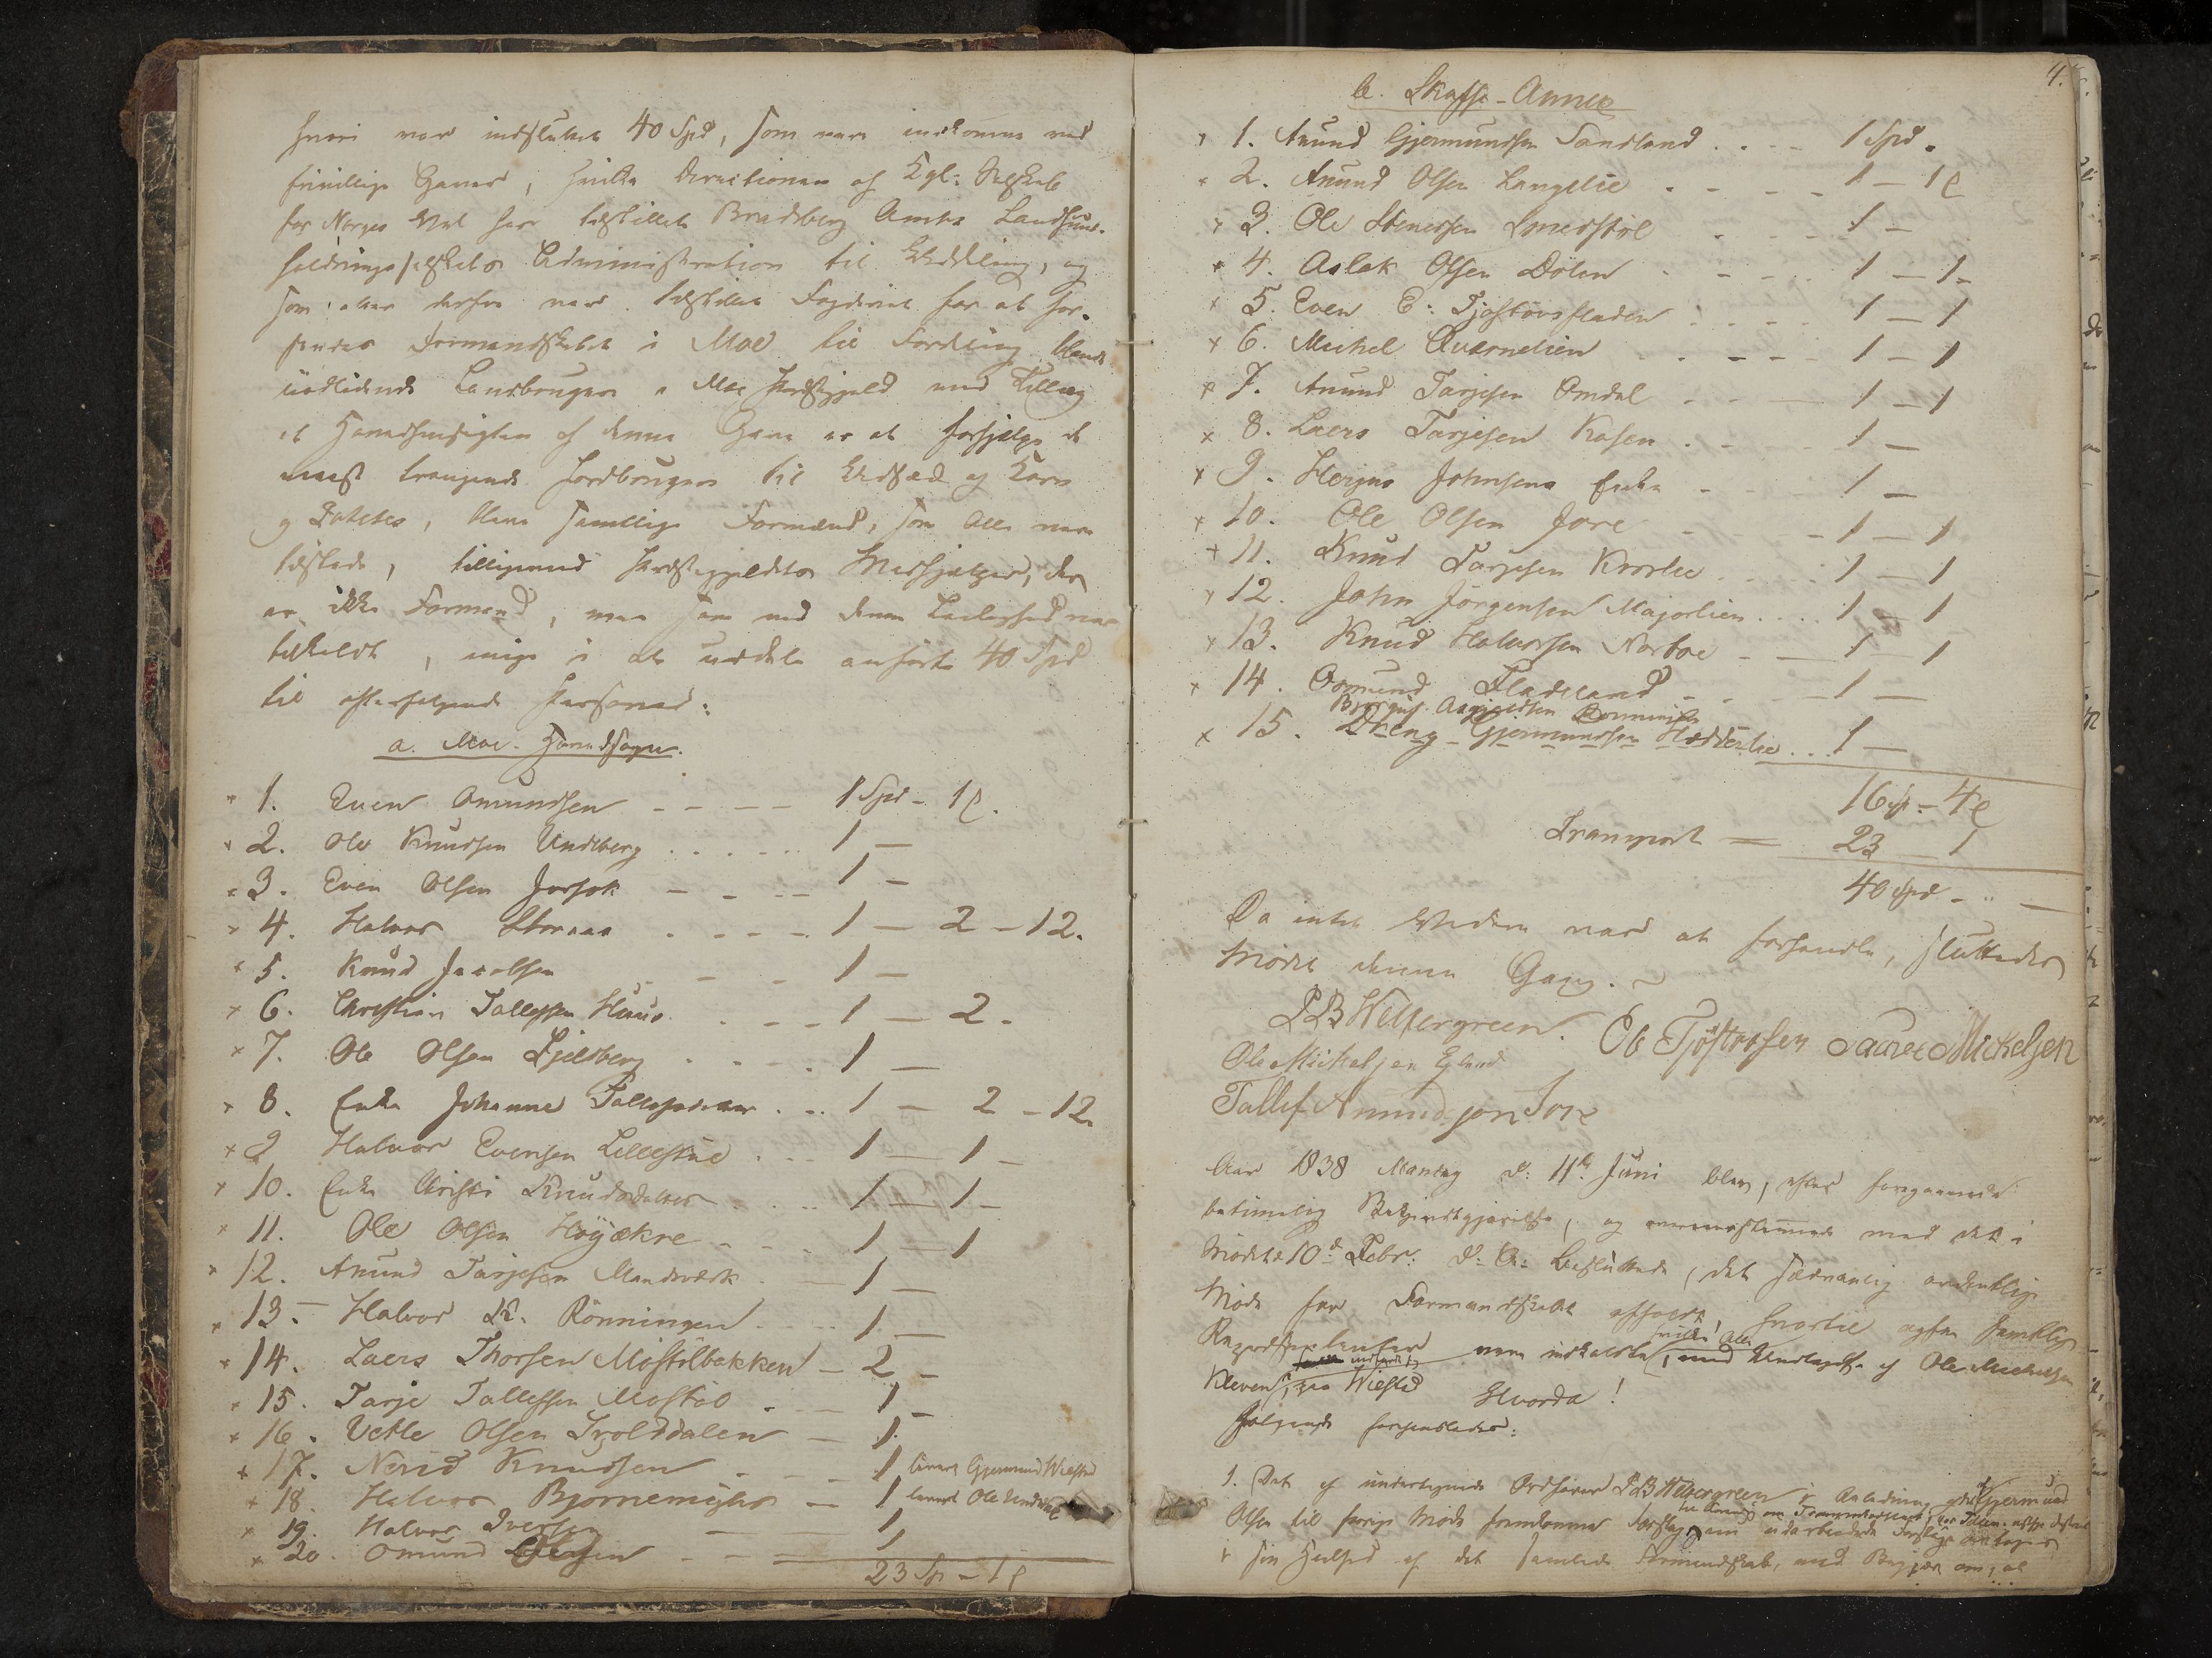 hvori var indsluttet 40 Spd, som vare indkomne ved
frivillige Gaver, hvilke Directionen af Kgl: Selskab
for Norges Vel har tilstillet Bradsberg Amts Landhuus-
holdningsselskabs Administration til Uddeling, og
som atter derfra var tilstillet Fogderiet for at for-
sendes Formandskabet i Moe til Fordeling blandt
uudlidende Landbrugere i Moe Præstegjeld med Tillæg
at Hovedhensigten af denne Gave er at forhjælpe de
meest trængende Jordbrugere til Udsæd af Korn
og Potetes, blev samtlige Formænd, som Alle vare
tilstede, tilligemed Præstegjeldets Medhjælpere, der
er ikke Formænd, men som ved denne Leilighed var
tilkaldt, enige i at uddele anførte 40 Spd
til efterfølgende Personer:
a. Moe-Hovedsogn.
× 1. Even Omundsen - - - - 1 Spd - 1 ₰.
× 2. Ole Knudsen Undeberg . . . . . 1 —
× 3. Even Olsen Jorsok - - - - 1 -
× 4. Halvor Storaas . - - - - 1 — 2 - 12.
× 5. Knud Jacobsen - - - 1 —
× 6. Christian Tallefsen Huus . - - - 1 — 2 -
× 7. Ole Olsen Fjelsberg . - - - 1 —
× 8. Enke Johanne Tallefsdatter . - - 1 — 2 - 12.
× 9 Halvor Evensen Lillestüe . - - - 1 — 1 -
× 10. Enke Christi Knudsdatter . - - - 1 — 1 -
× 11. Ole Olsen Høyækre - - - - 1 — 1
× 12. Anund Tarjesen Mandværk . — 1 —
× 13 - Halvor K. Rönningen . . . . 1 —
× 14. Laers Thorsen Möstölbakken — 2 -
× 15. Tarje Tallefsen Möstöl . - — 1 -
× 16. Vetle Olsen Trolddalen — 1.
× 17. Nerid Knudsen . - - - 1 leveret Gjermund Wiested
× 18. Halvor Bjørnemyhr — 1 leveret Ole Undeberg
× 19. Halvor Iversen — 1,
× 20. Omund Olsen - - - 1
23 Sp - 1 ₰
4.
b. Skafsø-Annex
× 1. Anund Gjermundsen Sandland . . - - 1 Spd.
× 2. Anund Olsen Langelie . - - - - 1 — 1 ₰
× 3. Ole Stenersen Smedstöl . - - - 1 —
× 4. Aslak Olsen Dölen . - - . 1 — 1 -
× 5. Even E: Tjöstovsfladen . . . . 1 — 1
× 6. Michel Qværnelien . . - - - 1 — 1
× 7. Anund Tarjesen Omdal . - - — 1 — 1
× 8. Laers Tarjesen Kosen . - - . 1 —
× 9. Herjus Johnsens Enke . - - . 1 —
× 10. Ole Olsen Jore . - - - 1 — 1
× 11. Knud Tarjesen Krorlie . . . . . 1 — 1
× 12. John Jörgensen Majorlien . . . . 1 — 1
× 13. Knud Halvorsen Nordboe - — 1 — 1
× 14. Osmund Fladeland - - — 1 —
× 15. Dreng Gjermundsen Hedderlie . . 1 —
16 sp - 4 ₰
Transport = 23 — 1
40 Spd - " —
Da intet Videre var at forhandle, sluttedes
Mödet denne Gang.
P B Weltergreen. Ole Tjöstovsen Laurs Mickelsen
Ole Mickelsen Eland
Tallef Anundsson Jore
Aar 1838 Mandag d: 11te Juni blev, efter foregaaende
betimelig Bekjendtgjørelse, og overeensstemmende med det i
Mödet 10de Febr: d: A: Besluttede, det sædvanlig ordentlige
Möde for Formandskabet afholdt, hvortil ogsaa samtlige
Repræsentanter vare indkaldte, med Undtagelse af Ole Mickelsen
Kleven, paa Wiested Hvorda!
Følgende forhandledes:
1. Det af undertegnede Ordförer P B Weltergreen i Anledning af Gjermund
Olsen til forrige Möde fremkomne Forslag, udarbeidede Forslag antages
i sin Heelhed af det samlede Formandskab, med Begjær om, at